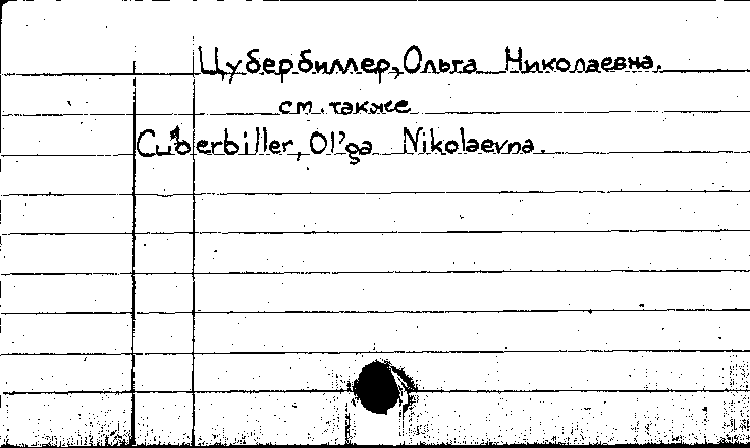 Цубербиллер, Ольга Николаевна.
см. также
Cuberbiller, Ol'ga Nikolaevna.